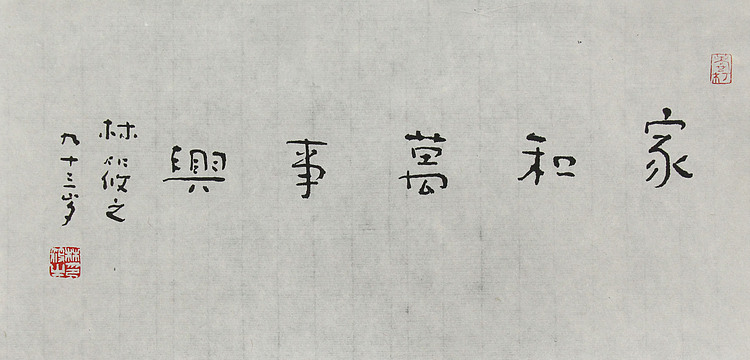 家和萬事興
林筱之
九十三岁